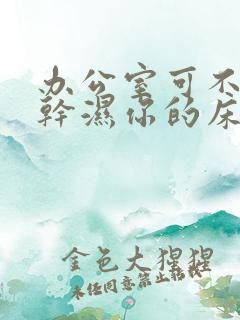 办公室可不
幹濕你的床
金色大猩猩
未经同意禁止转载